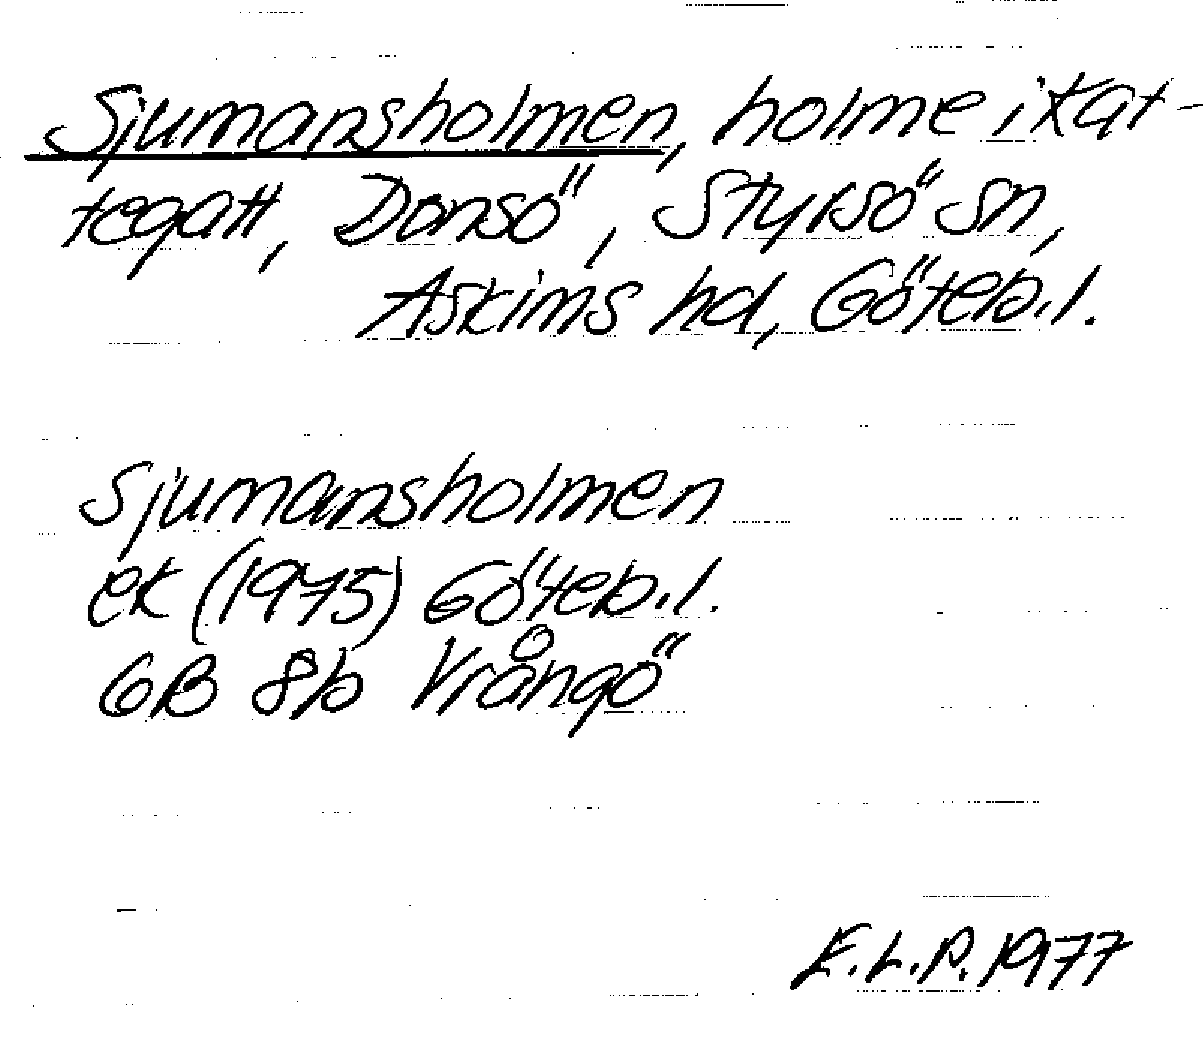 Sjumansholmen, holme i Kat-
tegatt, Donsö, Styrsö sn,
Askims hd, Göteb.l.
Sjumansholmen
ek (1975) Göteb.l.
6B 8b Vrångö
E.L.P. 1977